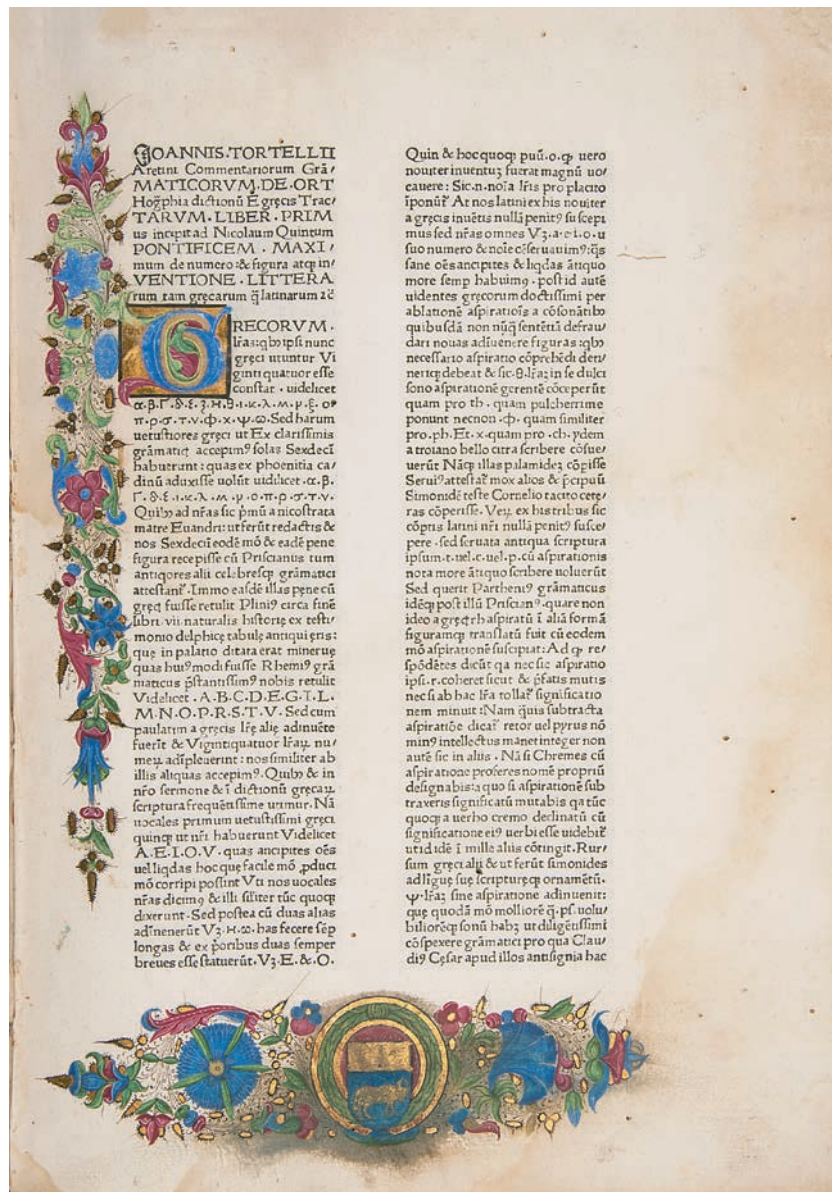 IOANNIS.TORTELLII
Aretini Commentariorum Grã/
MATICORVM.DE.ORT
Hogꝑhia dictionũ E gręcis Trac/
TARVM.LIBER.PRIM
us incipit ad Nicolaum Quintum
PONTIFICEM.MAXI/
mum de numero:& figura atqꝫ in/
VENTIONE.LITTERA
rum tam gręcarum q̃ latinarum ⁊c̃
GRECORVM.
lr̃as:qbꝰ ipsi nunc
gręci utuntur Vi
ginti quatuor esse
constat.uidelicet
α.β.Γ.δ.ε.ʒ.Η.θ.ι.κ.λ.μ.ν.ξ.ο
π.ρ.σ.τ.υ.φ.χ.ψ.ω.Sed harum
uetustiores gręci ut Ex clarissimis
grãmatic̨ accepimꝰ solas Sexdecĩ
habuerunt:quas ex phoenitia ca/
dinũ aduxisse uolũt uidilicet.α.β.
Γ.δ.ε.ι.κ.λ.μ.ν.ο.π.ρ.σ.τ.υ.
Quibꝰ ad nr̃as sic p̃mũ a nicostrata
matre Euandri:ut ferũt redactis &
nos Sexdecĩ eodẽ mõ & eadẽ pene
figura recepisse cũ Priscianus tum
antiqores alii celebresqꝫ grãmatici
attestant᷑.Immo easdẽ illas pęne cũ
gręc̨ fuisse retulit Pliniꝰ circa finẽ
libri.vii.naturalis historię ex testi/
monio delphicę tabulę antiqui ęris:
quę in palatio dicata erat mineruę
quas huiꝰmodi fuisse Rhemiꝰ grã
maticus p̃stantissimꝰ nobis retulit
Videlicet.A.B.C.D.E.G.I.L.
M.N.O.P.R.S.T.V.Sed cum
paulatim a gręcis lr̃ę alię adinuẽtę
fuerĩt & Vigintiquatuor lr̃aꝝ nu/
meꝝ adĩpleuerint:nos similiter ab
illis aliquas accepimꝰ.Quibꝰ & in
nr̃o sermone & ĩ dictionũ gręcaꝝ
scriptura frequẽtissime utimur.Nã
uocales primum uetustissimi gręci
quinqꝫ ut nr̃i habuerunt Videlicet
A.E.I.O.V.quas ancipites oẽs
uel liqdas hoc quę facile mõ ꝓduci
mõ corripi possint Vti nos uocales
nr̃as dicimꝰ & illi sil̃iter tũc quoqꝫ
dixerunt.Sed postea cũ duas alias
adĩnenerũt Vꝫ.Η.ω.has fecere sẽp
longas & ex p̃oribus duas semper
breues esse statuerũt.Vꝫ.E.&.O.
Quin & hoc quoqꝫ puũ.o.qꝫ uero
nouiter inuentuꝫ fuerat magnũ uo/
cauere:Sic.n.noĩa lr̃is pro placito
ĩponũt᷑ At nos latini ex his nouiter
a gręcis inuẽtis nullã penitꝰ suscepi
mus sed nr̃as omnes Vꝫ.a.e.i.o.u
suo numero & noĩe cõseruauimꝰ:q̃s
sane oẽs ancipites & liqdas ãtiquo
more semp habuimꝰ.post id autẽ
uidentes gręcorum doctissimi per
ablationẽ aspiratiõis a cõsonãtibꝰ
quibusdã non nũq̃ sentẽtiã defrau/
dari nouas adĩuenere figuras:qbꝰ
necessario aspiratio cõprehẽdi deti/
neriqꝫ debeat & sic.θ.lr̃aꝫ in se dulci
sono aspirationẽ gerentẽ cõceperũt
quam pro th.quam pulcherrime
ponunt necnon.φ.quam similiter
pro.ph.Et.x.quam pro.ch.ydem
a troiano bello citra scribere cõsue/
uerũt Nãqꝫ illas palamideꝫ cõpisse
Seruiꝰ attestat᷑ mox alios & p̃cipuũ
Simonidẽ teste Cornelio tacito cęte/
ras cõperisse.Veꝝ ex his tribus sic
cõptis latini nr̃i nullã penitꝰ susce/
pere.sed seruata antiqua scriptura
ipsum.t.uel.c.uel.p.cũ aspirationis
nota more ãtiquo scribere uoluerũt
Sed querit Partheniꝰ grãmaticus
idẽqꝫ post illũ Priscianꝰ.quare non
ideo a gręc̨ rh aspiratũ ĩ aliã formã
figuramqꝫ translatũ fuit cũ eodem
mõ aspirationẽ suscipiat:Ad qꝫ re/
spõdẽtes dicũt qa nec sic aspiratio
ipsi.r.coheret sicut & p̃fatis mutis
nec si ab hac lr̃a tollat᷑ significatio
nem minuit:Nam q̃uis subtracta
aspiratiõe dicat᷑ retor uel pyrus nõ
minꝰ intellectus manet integer non
autẽ sic in aliis.Nã si Chremes cũ
aspiratione proferes nomẽ propriũ
designabis:a quo si aspirationẽ sub
traxeris significatũ mutabis qa tũc
quoqꝫ a uerbo cremo declinatũ cũ
significatione eiꝰ uerbi esse uidebit᷑
ut id idẽ ĩ mille aliis cõtingit.Rur/
sum gręci alii & ut ferũt simonides
ad lĩguę suę scripturęqꝫ ornamẽtũ.
ψ.lr̃aꝫ sine aspiratione adinuenit:
quę quodã mõ molliorẽ q̃.ps.uolu/
biliorẽqꝫ sonũ habꝫ ut diligẽtissimi
cõspexere grãmatici pro qua Clau/
diꝰ Cęsar apud illos antisignia hac